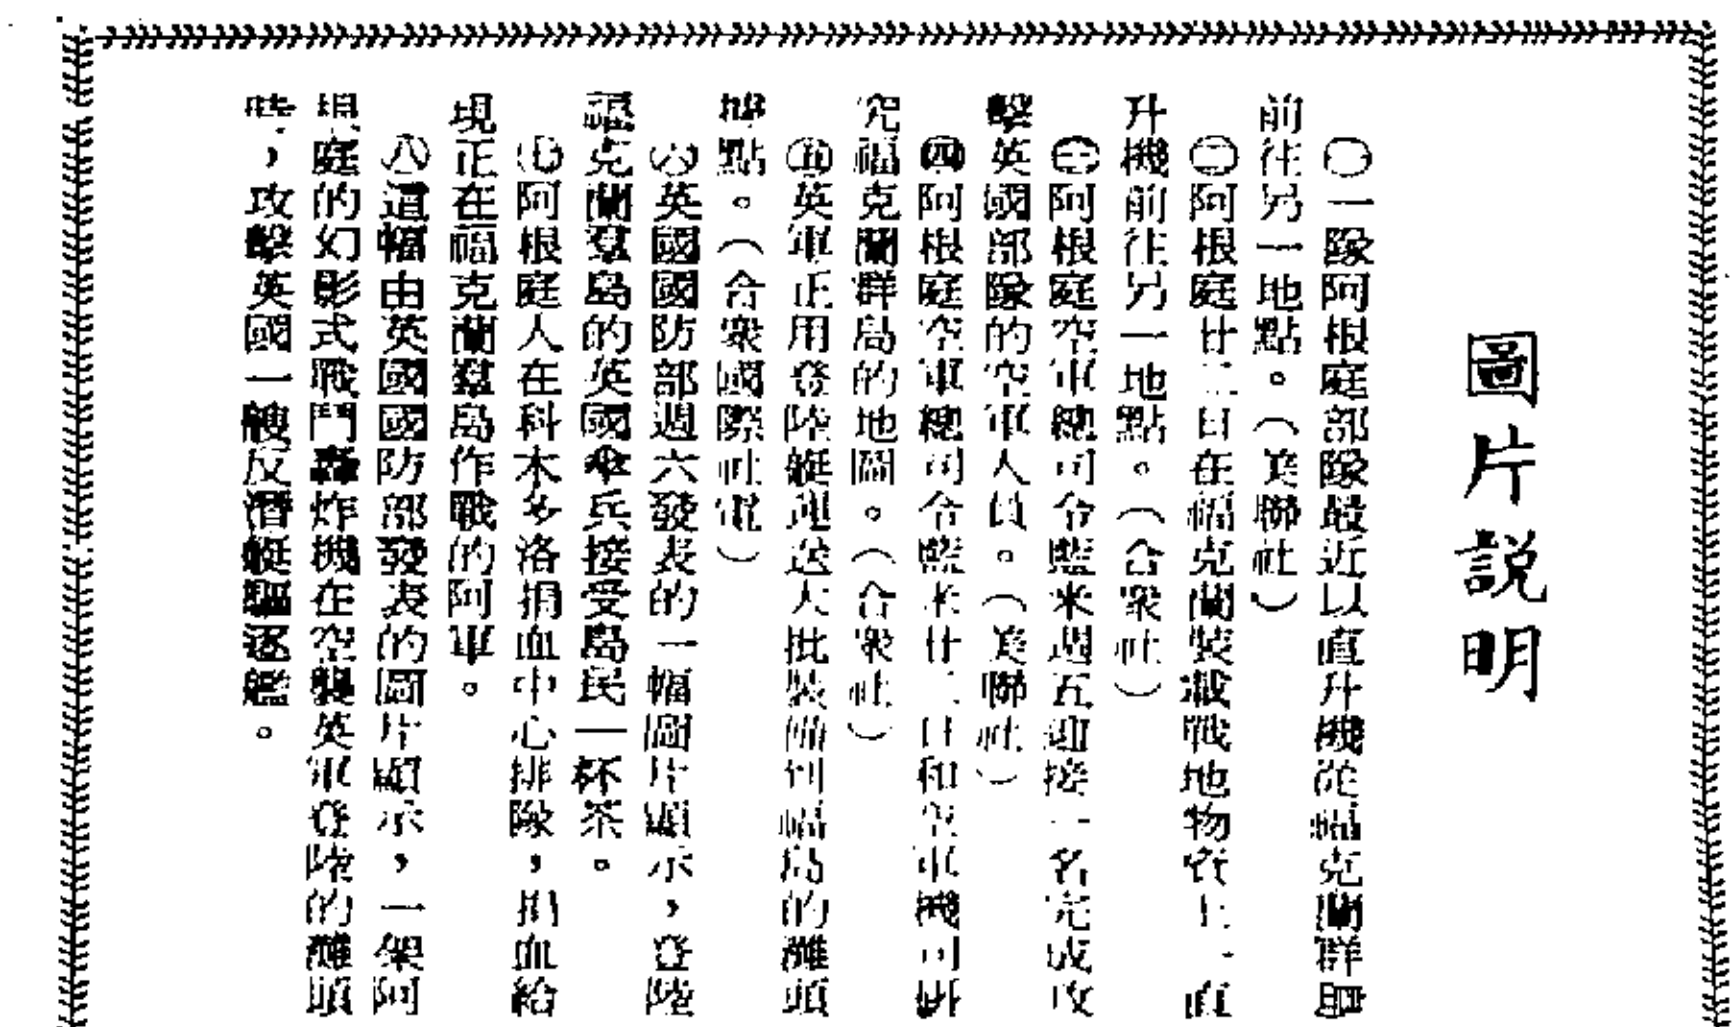 圖片説明
㊀一隊阿根庭部隊最近以直升機從福克蘭群島
前往另一地點。（美聯社）
㊁阿根庭廿二日在福克蘭裝載戰地物資上一直
升機前往另一地點。（合衆社）
㊂阿根庭空軍總司令藍米週五迎接一名完成攻
擊英國部隊的空軍人員。（美聯社）
㊃阿根庭空軍總司令藍米廿二日和空軍機司研
究福克蘭群島的地圖。（合衆社）
㊄英軍正用登陸艇運送大批裝備到福島的灘頭
據點。（合衆國際社電）
㊅英國國防部週六發表的一幅圖片顯示，登陸
福克蘭羣島的英國傘兵接受島民一杯茶。
㊆阿根庭人在科木多洛捐血中心排隊，捐血給
現正在福克蘭羣島作戰的阿軍。
㊇這幅由英國國防部發表的圖片顯示，一架阿
根庭的幻影式戰鬥轟炸機在空襲英軍登陸的灘頭
時，攻擊英國一艘反潛艇驅逐艦。